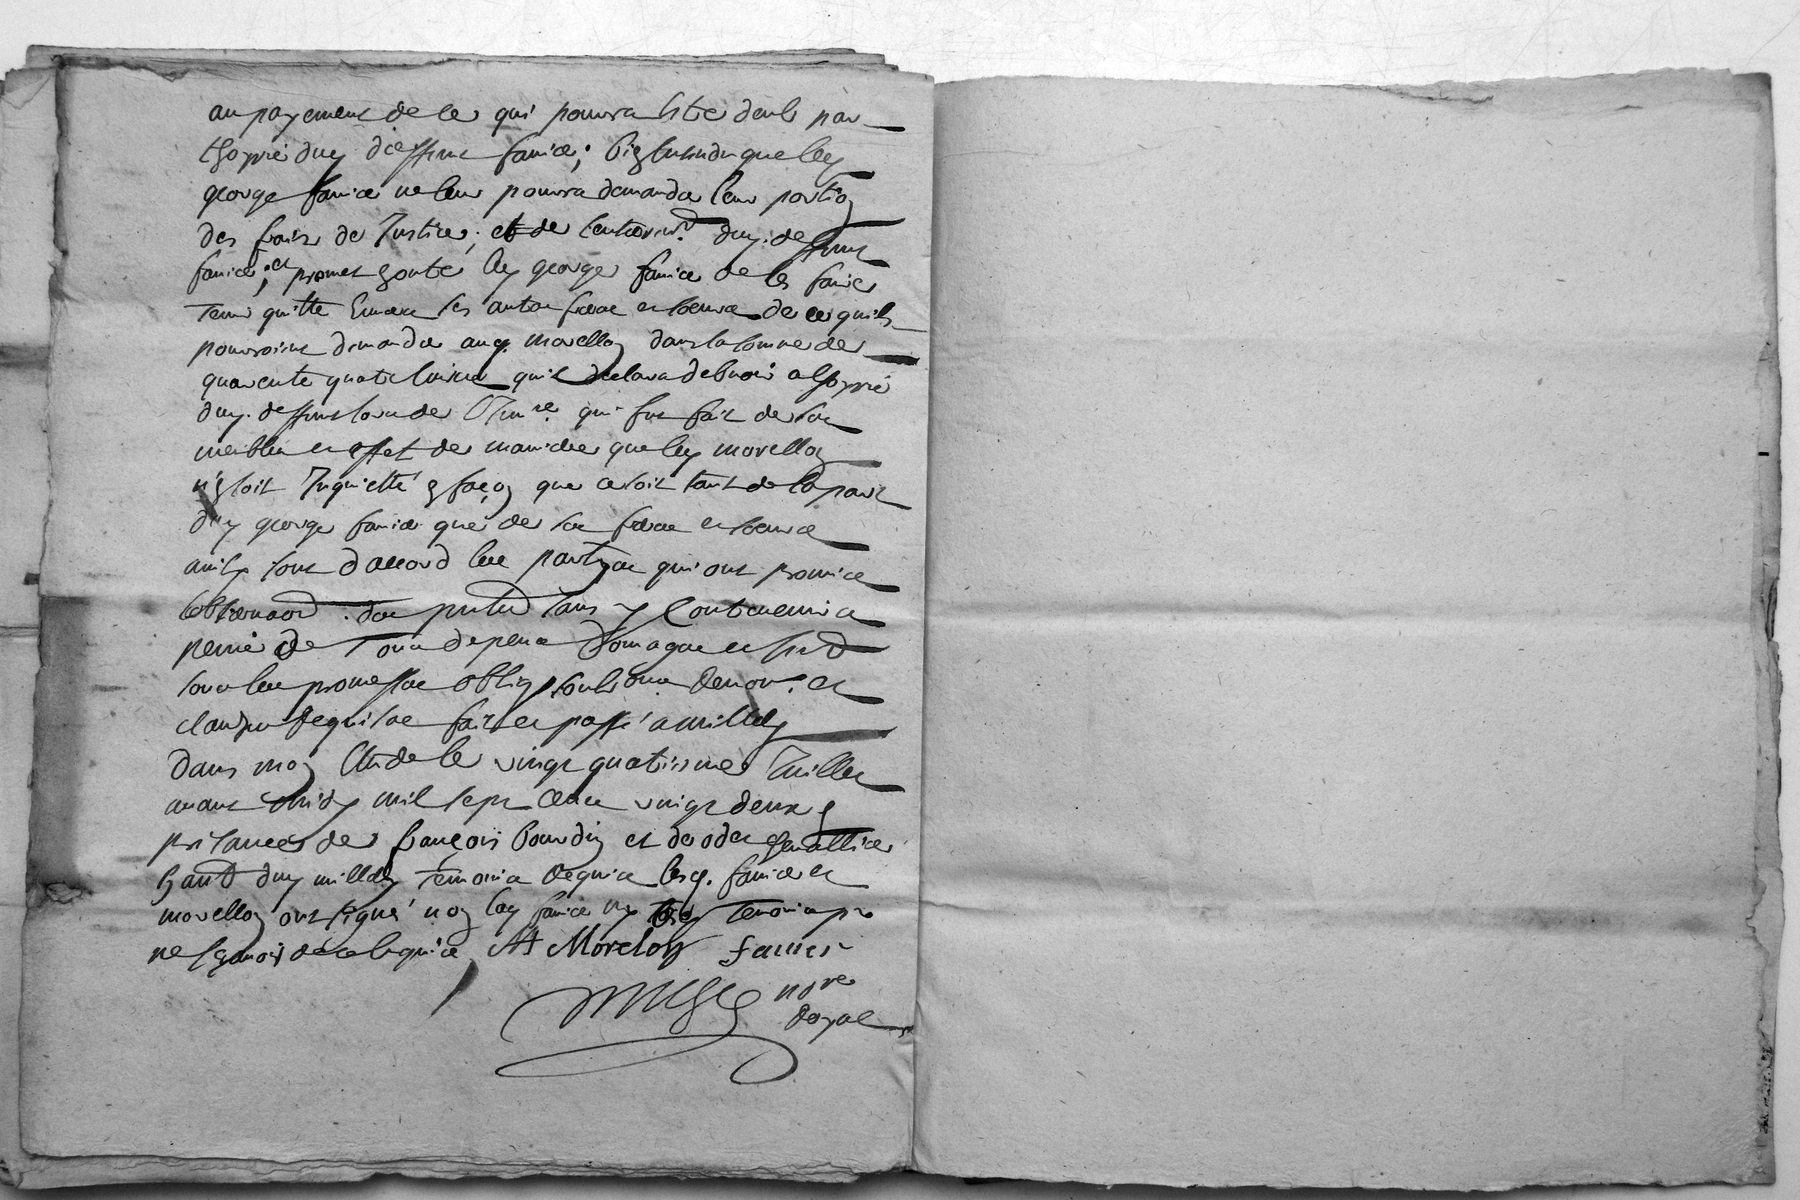 au payement de ce qui pourra estre deub par
duy deffunt famier; bien entendu que ley
george famier ne leur pourra demander leur portion
des frais de Justice; et de duy. deffunt
famier; et promet outre ley george famier de les faire
tenir quitte Envers les autres freres et soeurs de ce quils
pourroient demander auy. morellon dans la somme de
quarente quatre livres quil declara debvoir a
duy. deffunt lors de qui fut fait de ses
meubles et effet de maniere que ley morellon
n'en soit Inquietté en façon que ce soit tant de la part
duy george famier que de ses freres et soeurs
ainsy sont daccord les partyes qui ont promis
sans y Contrevenir a
peine de Tous depens Domages et
soubs les promesses oblig. renon. et
clauses Requises fait et passé a milley
dans mon Etude le vingt quatriesme Juillet
avant midy mil sept Cents vingt deux en
presence de françois bourdin et de
duy milley Temoins Requis lesq. famier et
morellon ont signé non ley famier ny Temoins pr
ne sçavoir de ce Requis At Morelon famier
no.re
Royal